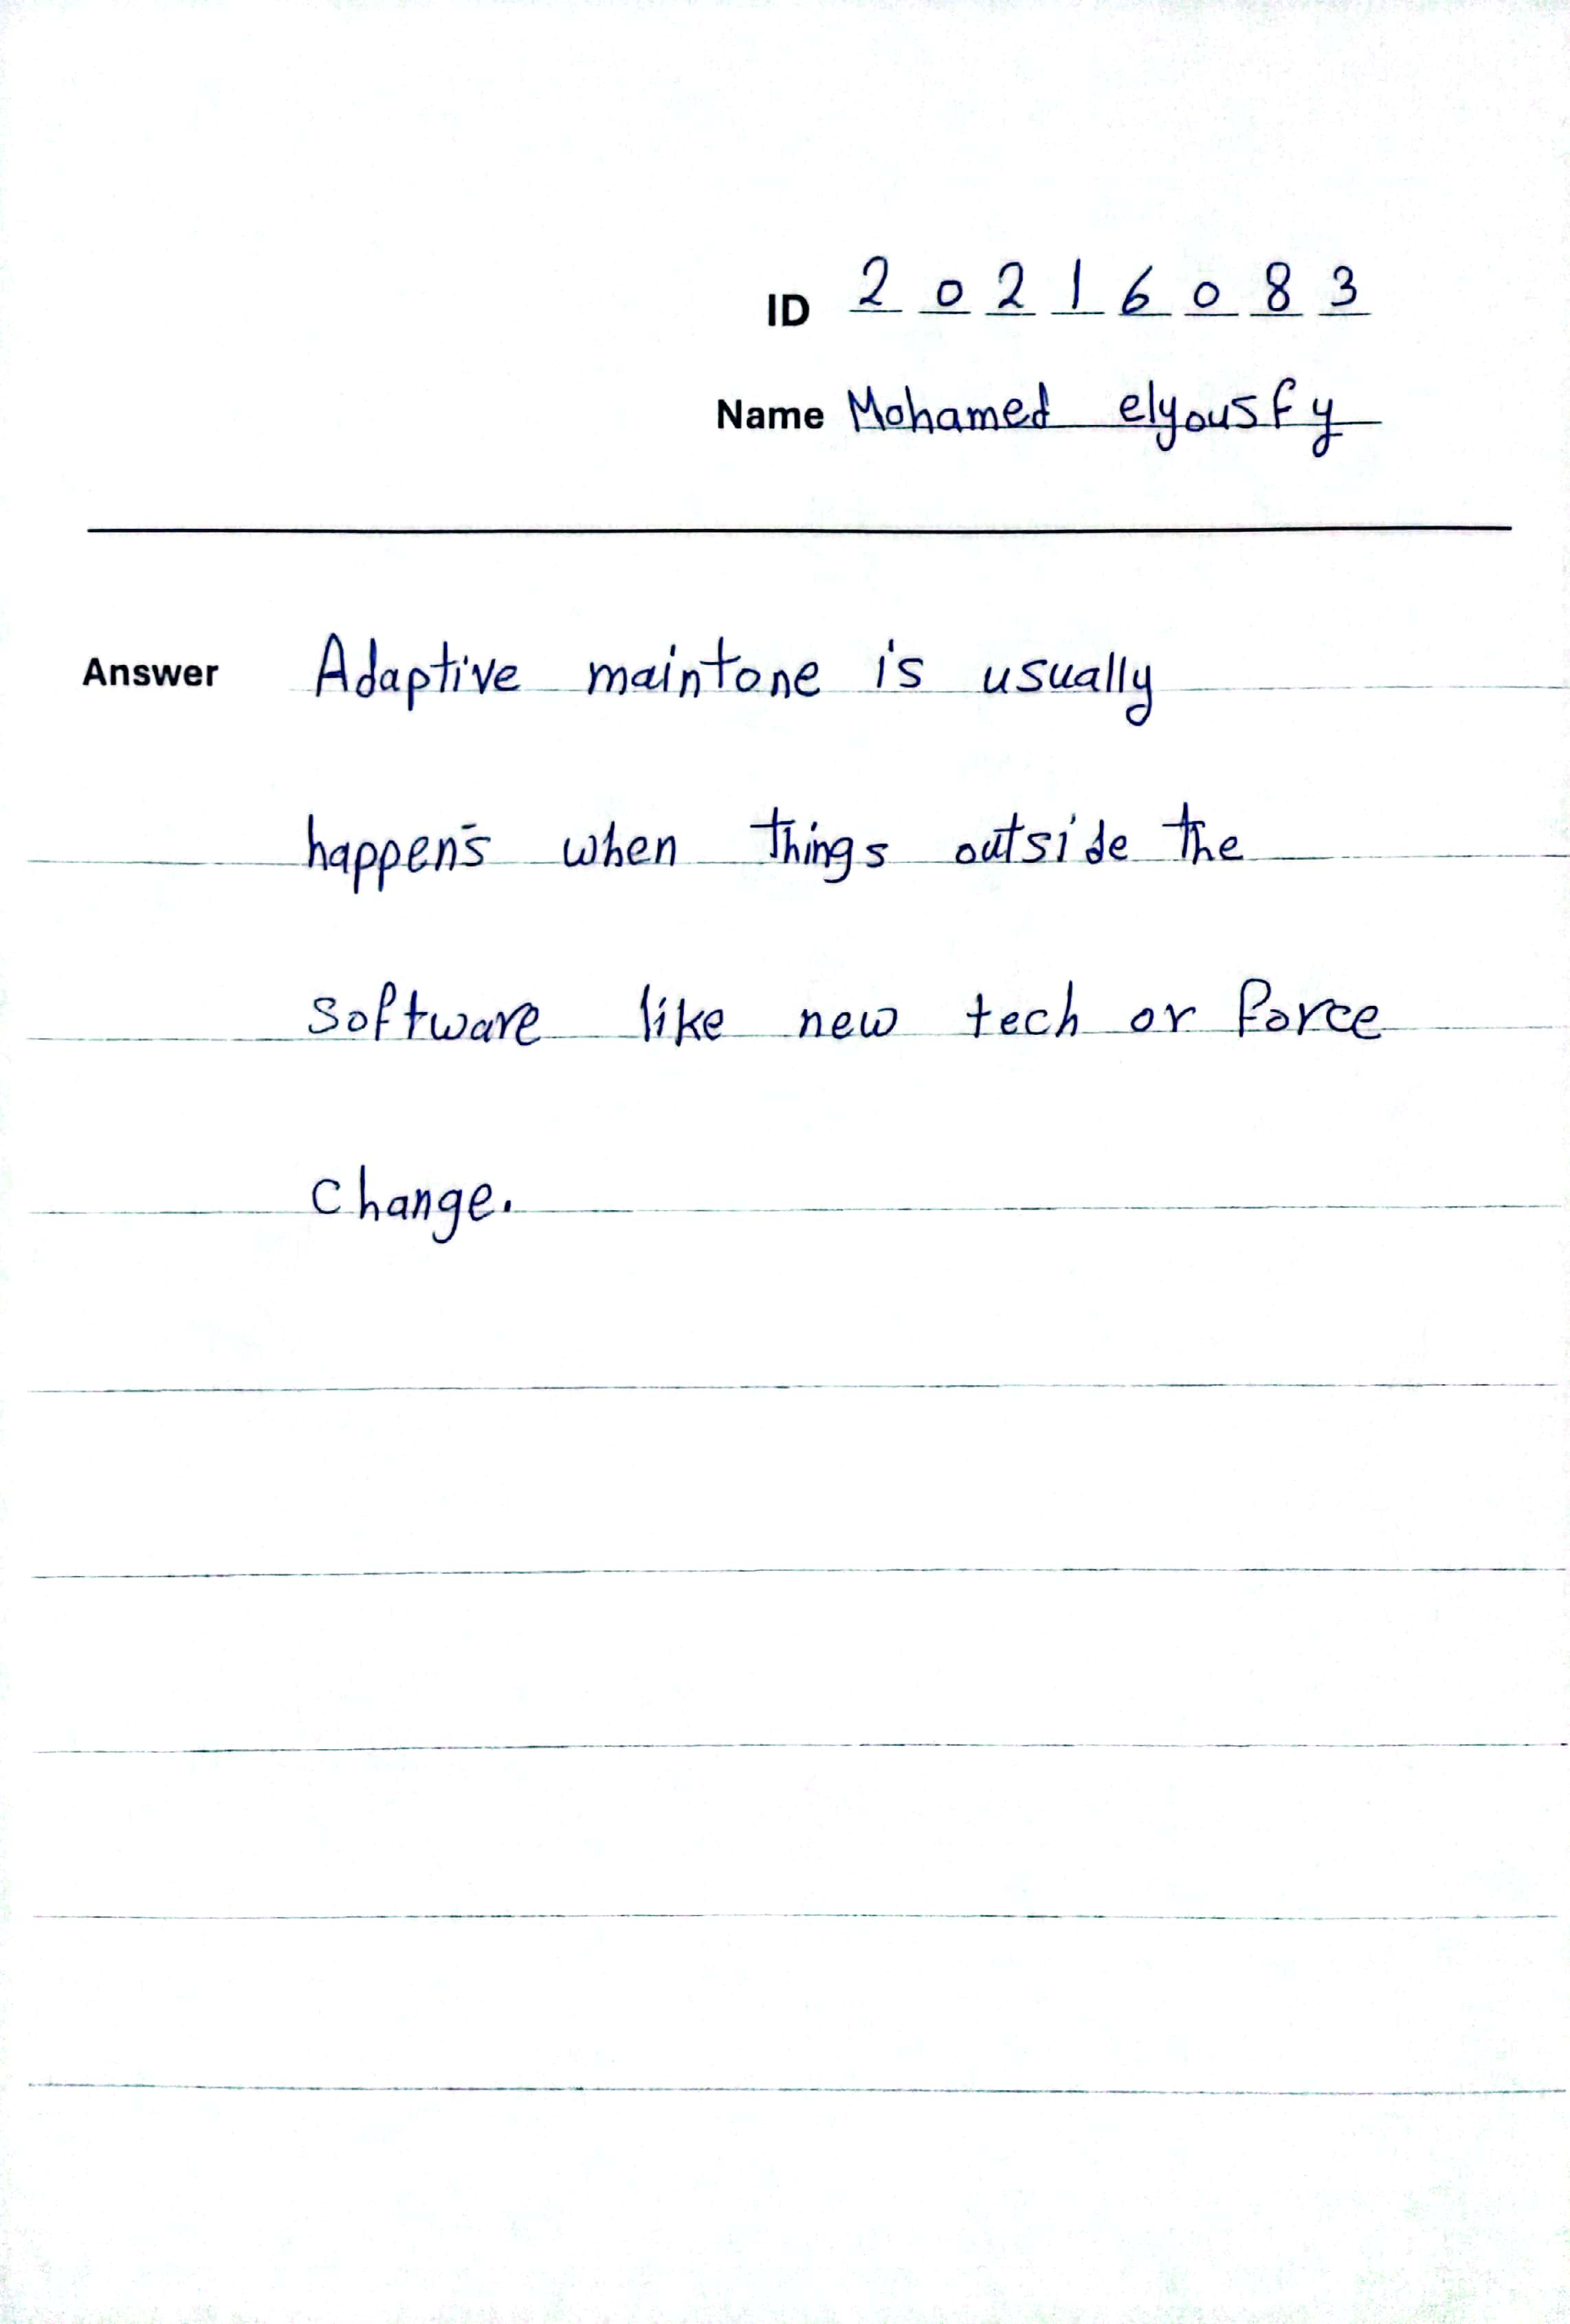 ID 20216083
Name Mohamed elyousfy
Answer Adaptive maintone is usually
happens when things outside the
software like new tech or force
change.